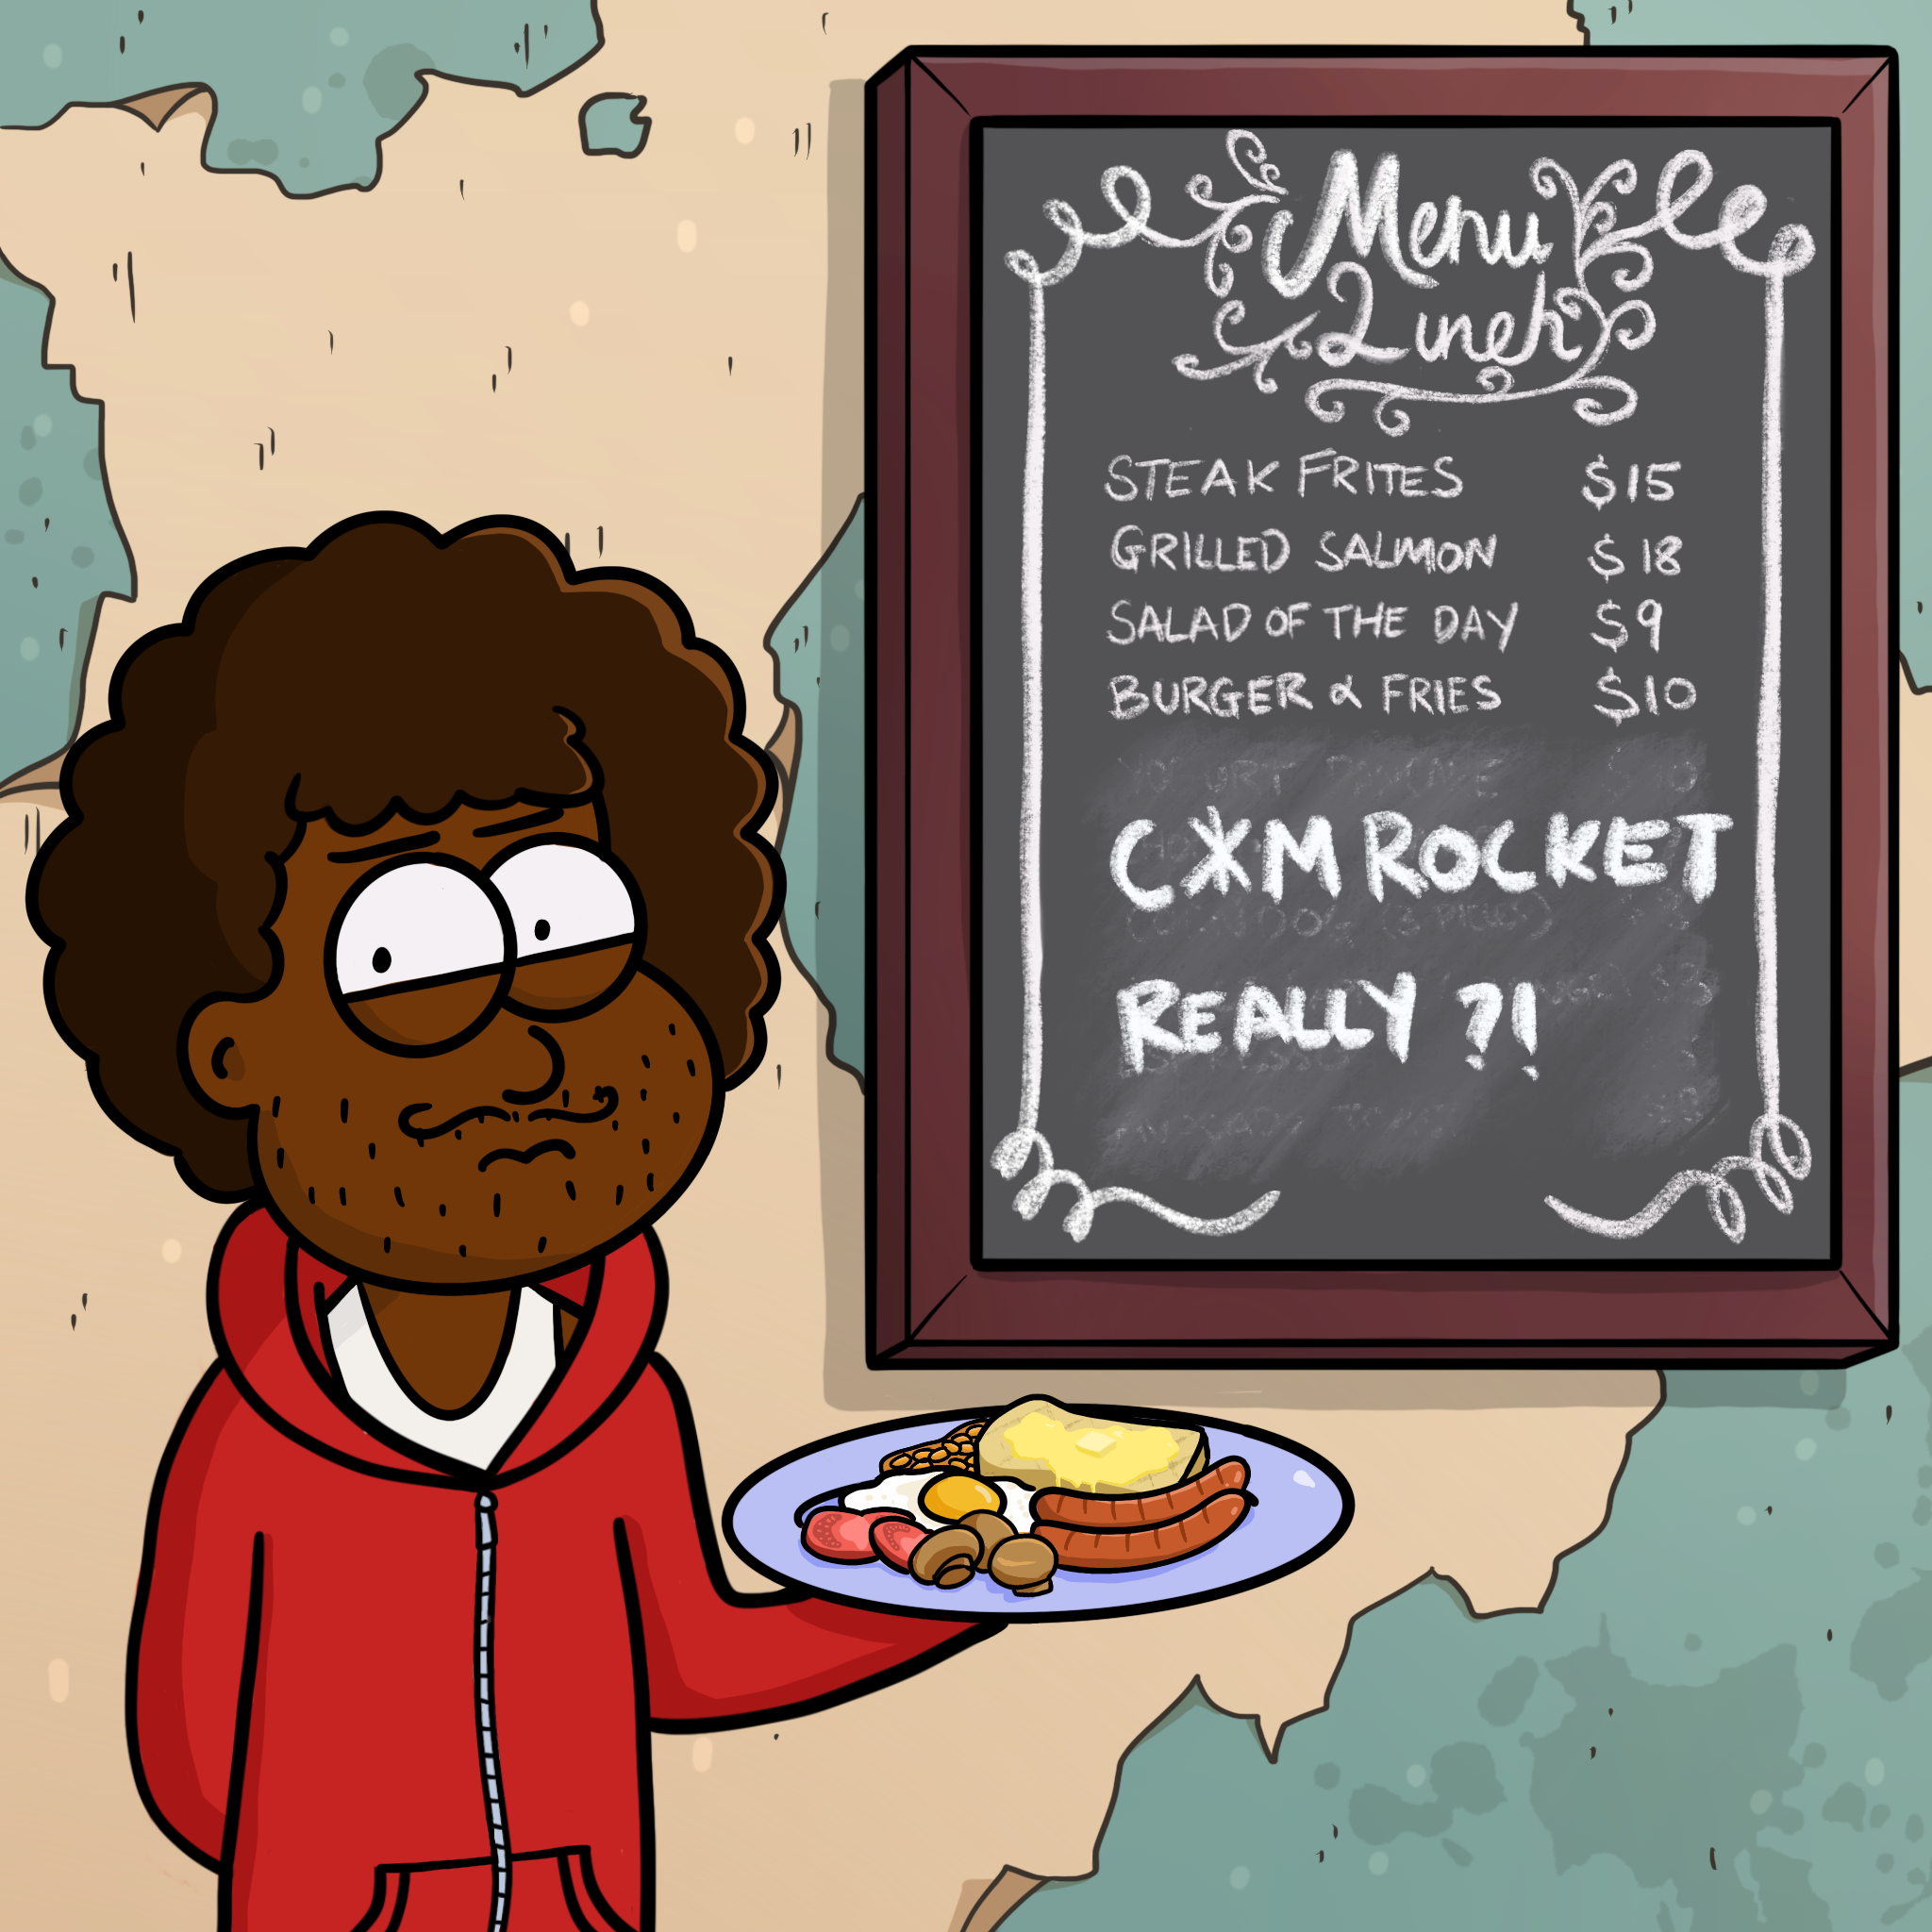 Menu
Lunch
STEAK FRITES $15
GRILLED SALMON $18
SALAD OF THE DAY $9
BURGER & FRIES $10
C*M ROCKET
REALLY ?!